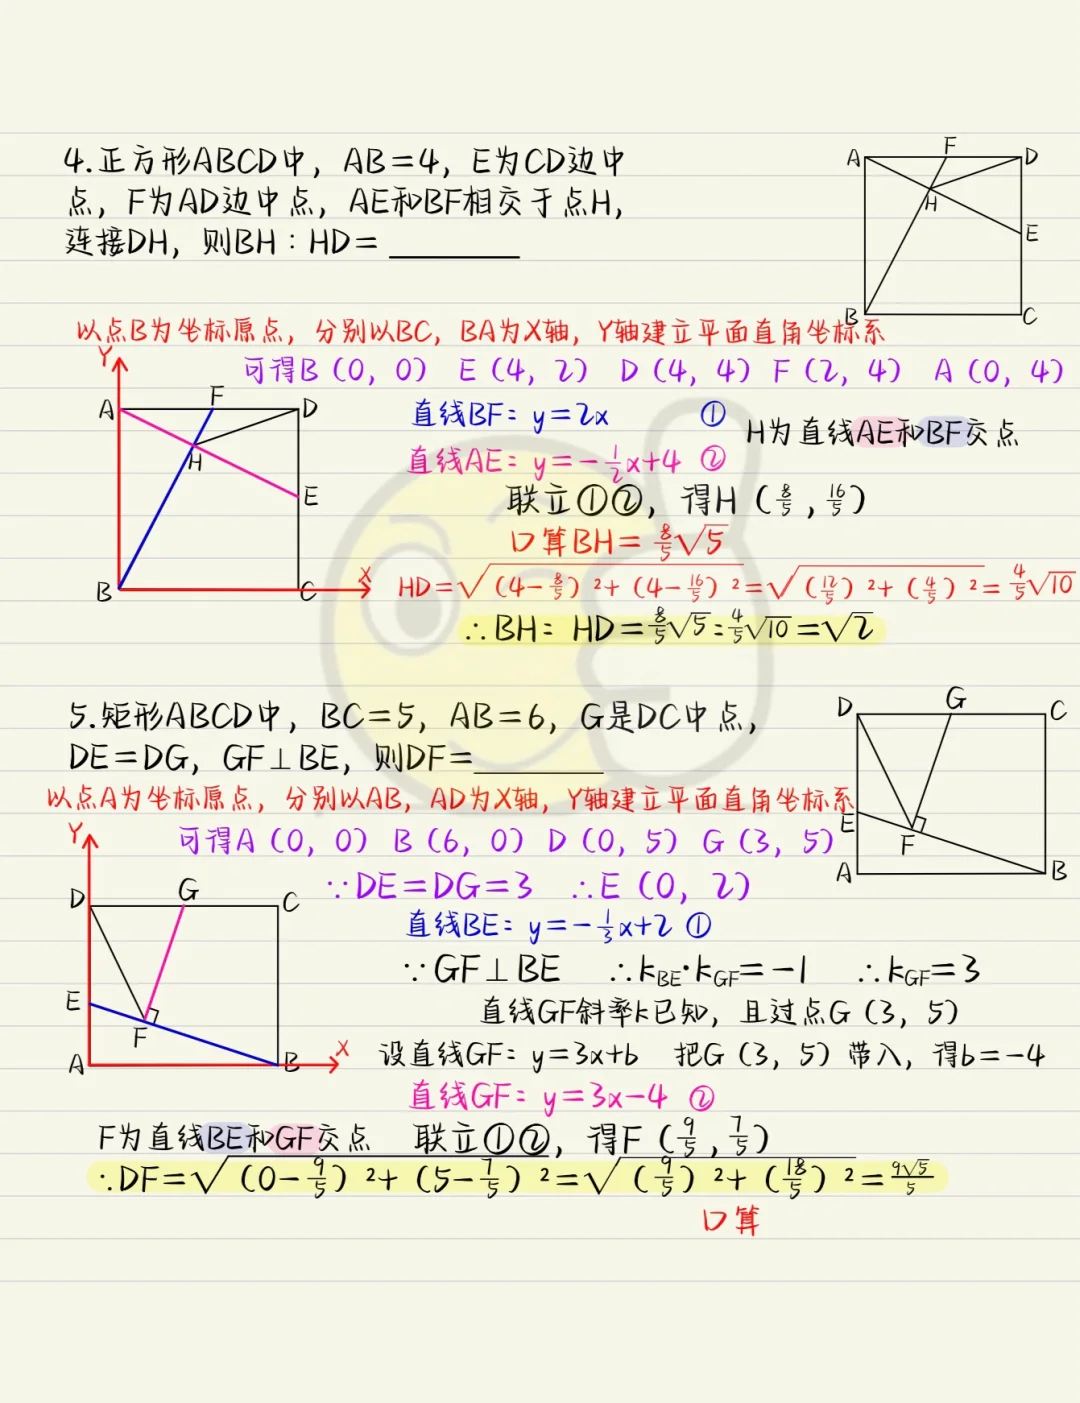 4.正方形ABCD中，AB=4，E为CD边中
点，F为AD边中点，AE和BF相交于点H，
连接DH，则BH：HD=________
A F D
H
E
B C
以点B为坐标原点，分别以BC，BA为X轴，Y轴建立平面直角坐标系
可得B（0，0） E（4，2） D（4，4） F（2，4） A（0，4）
Y
A F D
H
E
B C X
直线BF：y=2x ①
直线AE：y=-1/2x+4 ②
H为直线AE和BF交点
联立①②，得H（8/5，16/5）
口算BH=8/5√5
HD=√（4-8/5）²+（4-16/5）²=√（12/5）²+（4/5）²=4/5√10
∴BH：HD=8/5√5：4/5√10=√2
5.矩形ABCD中，BC=5，AB=6，G是DC中点，
DE=DG，GF⊥BE，则DF=________
D G C
E
F
A B
以点A为坐标原点，分别以AB，AD为X轴，Y轴建立平面直角坐标系
可得A（0，0） B（6，0） D（0，5） G（3，5）
Y
D G C
E
F
A B X
∵DE=DG=3 ∴E（0，2）
直线BE：y=-1/3x+2 ①
∵GF⊥BE ∴kBE·kGF=-1 ∴kGF=3
直线GF斜率k已知，且过点G（3，5）
设直线GF：y=3x+b 把G（3，5）带入，得b=-4
直线GF：y=3x-4 ②
F为直线BE和GF交点 联立①②，得F（9/5，7/5）
∴DF=√（0-9/5）²+（5-7/5）²=√（9/5）²+（18/5）²=9√5/5
口算